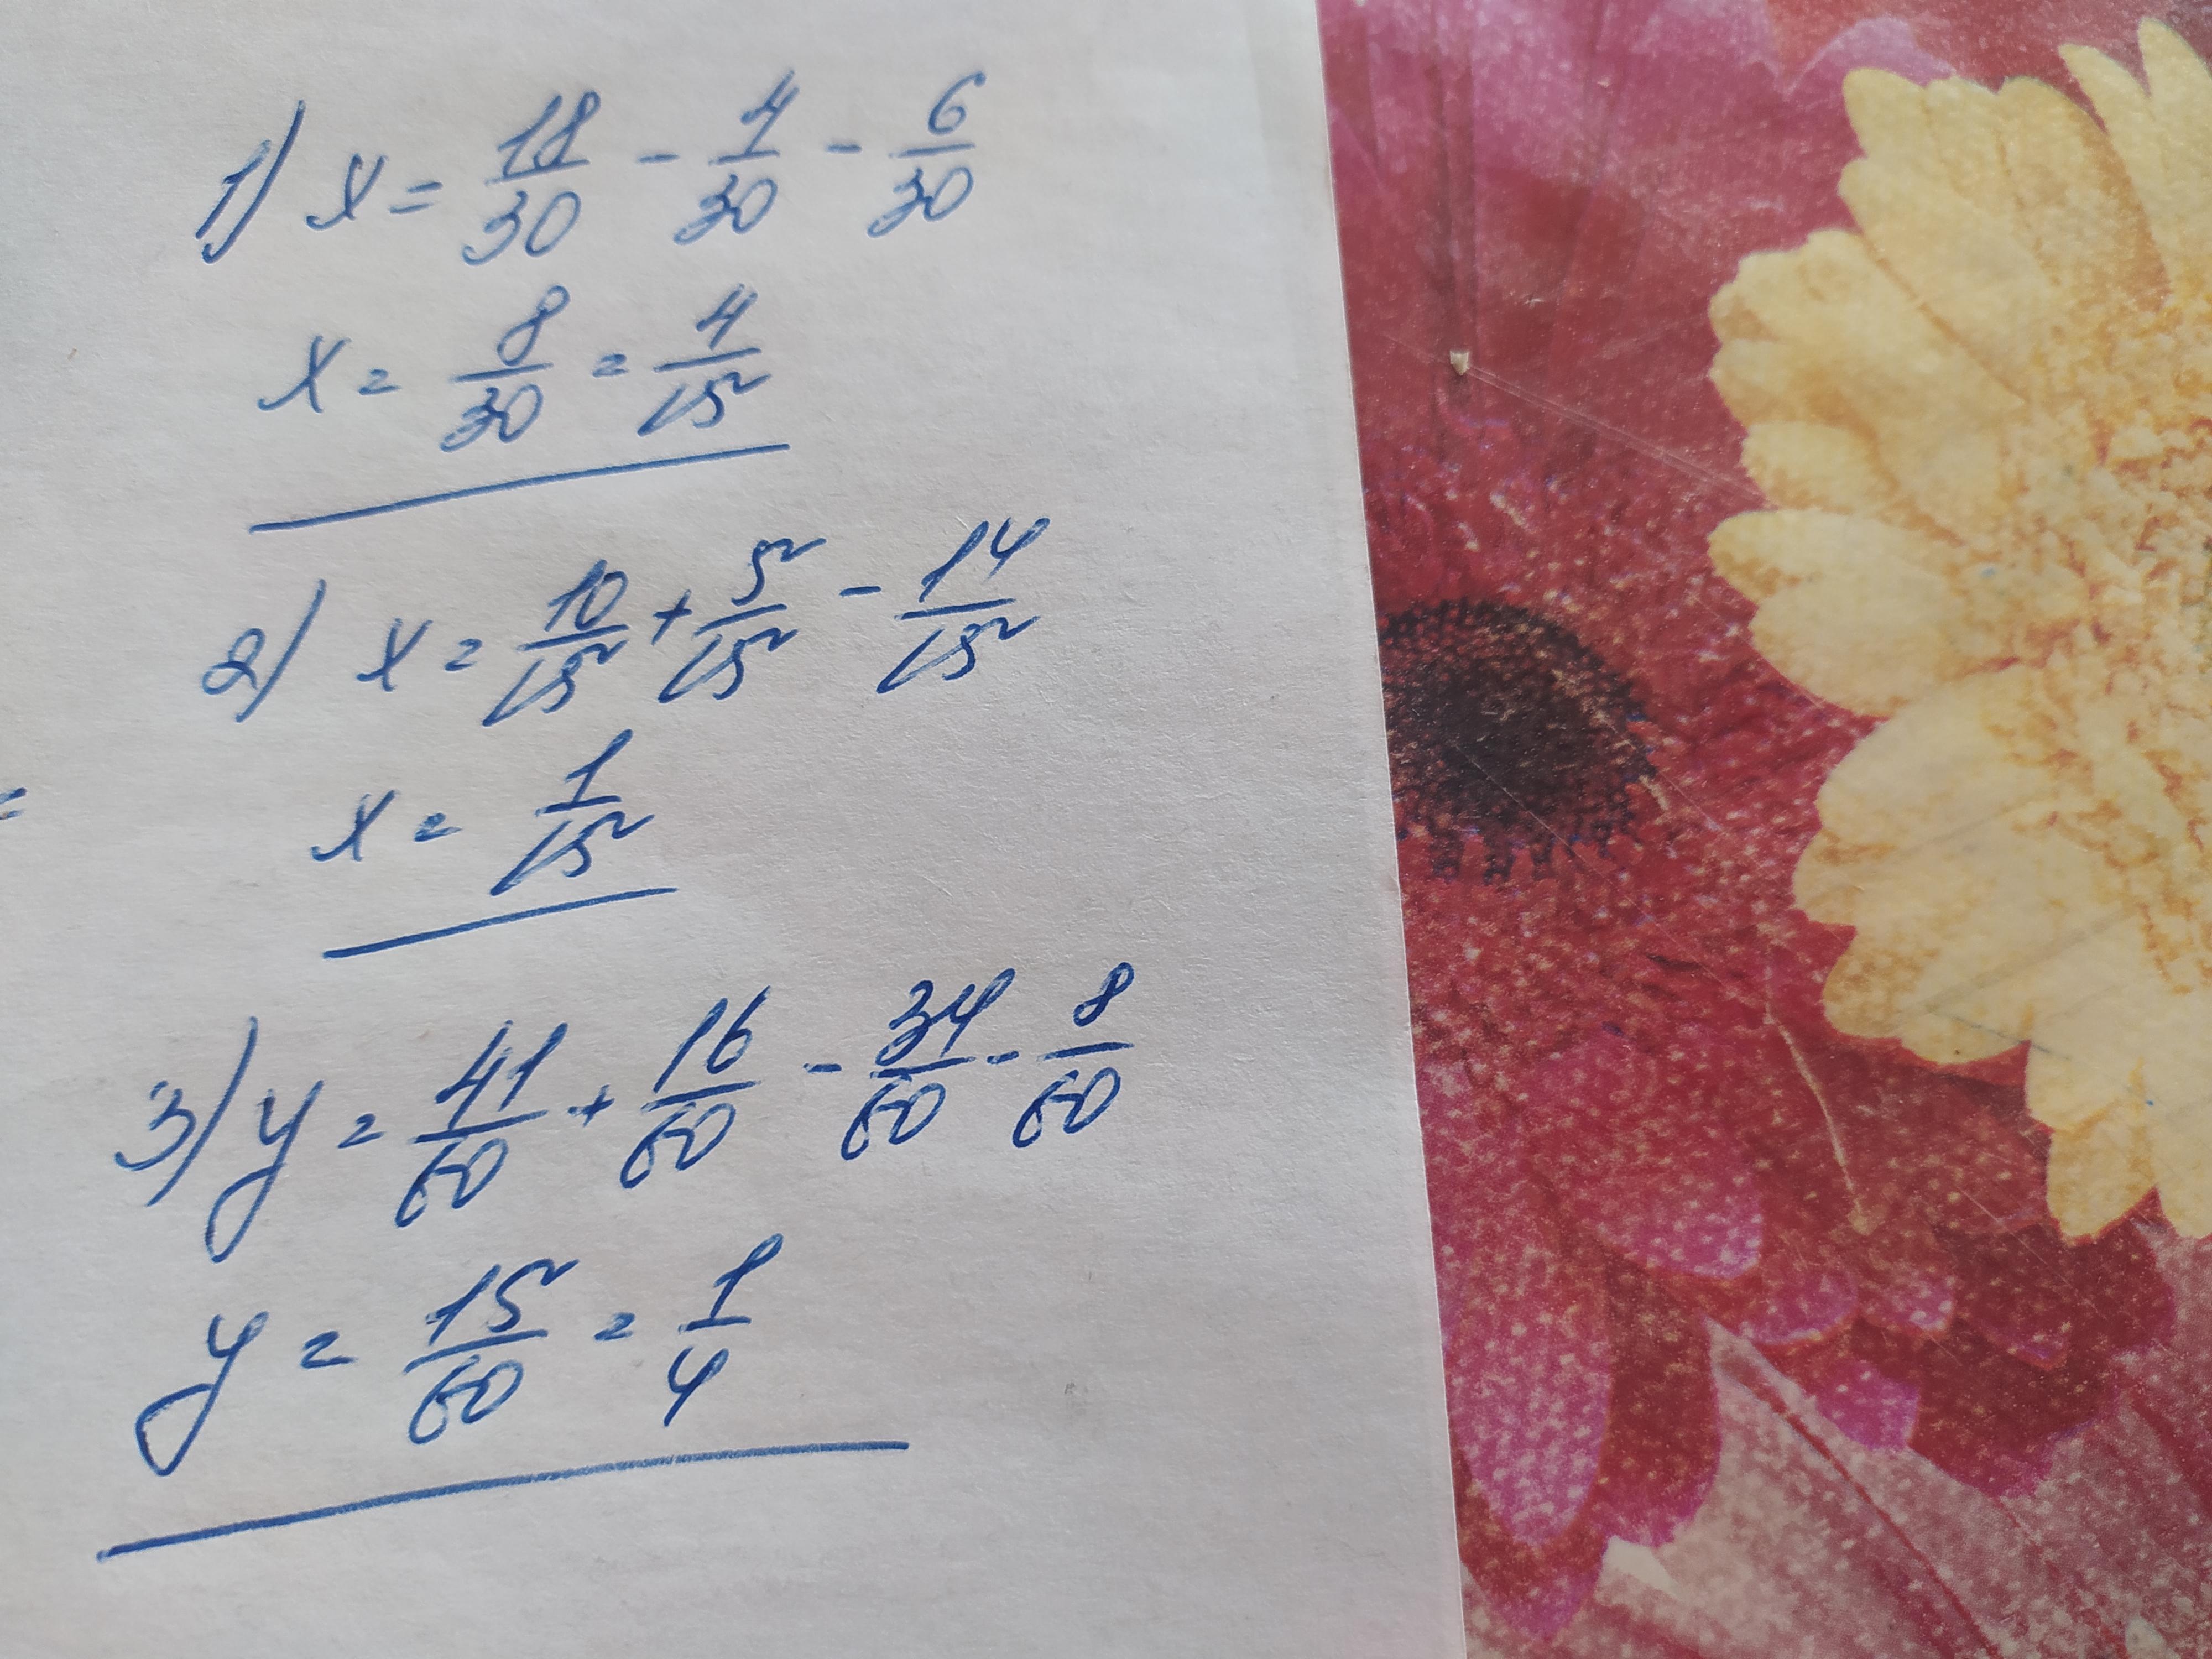 1) x = 18/30 - 4/30 - 6/30
x = 8/30 = 4/15
2) x = 10/15 + 5/15 - 14/15
=
x = 1/15
3) y = 41/60 + 16/60 - 34/60 - 8/60
y = 15/60 = 1/4